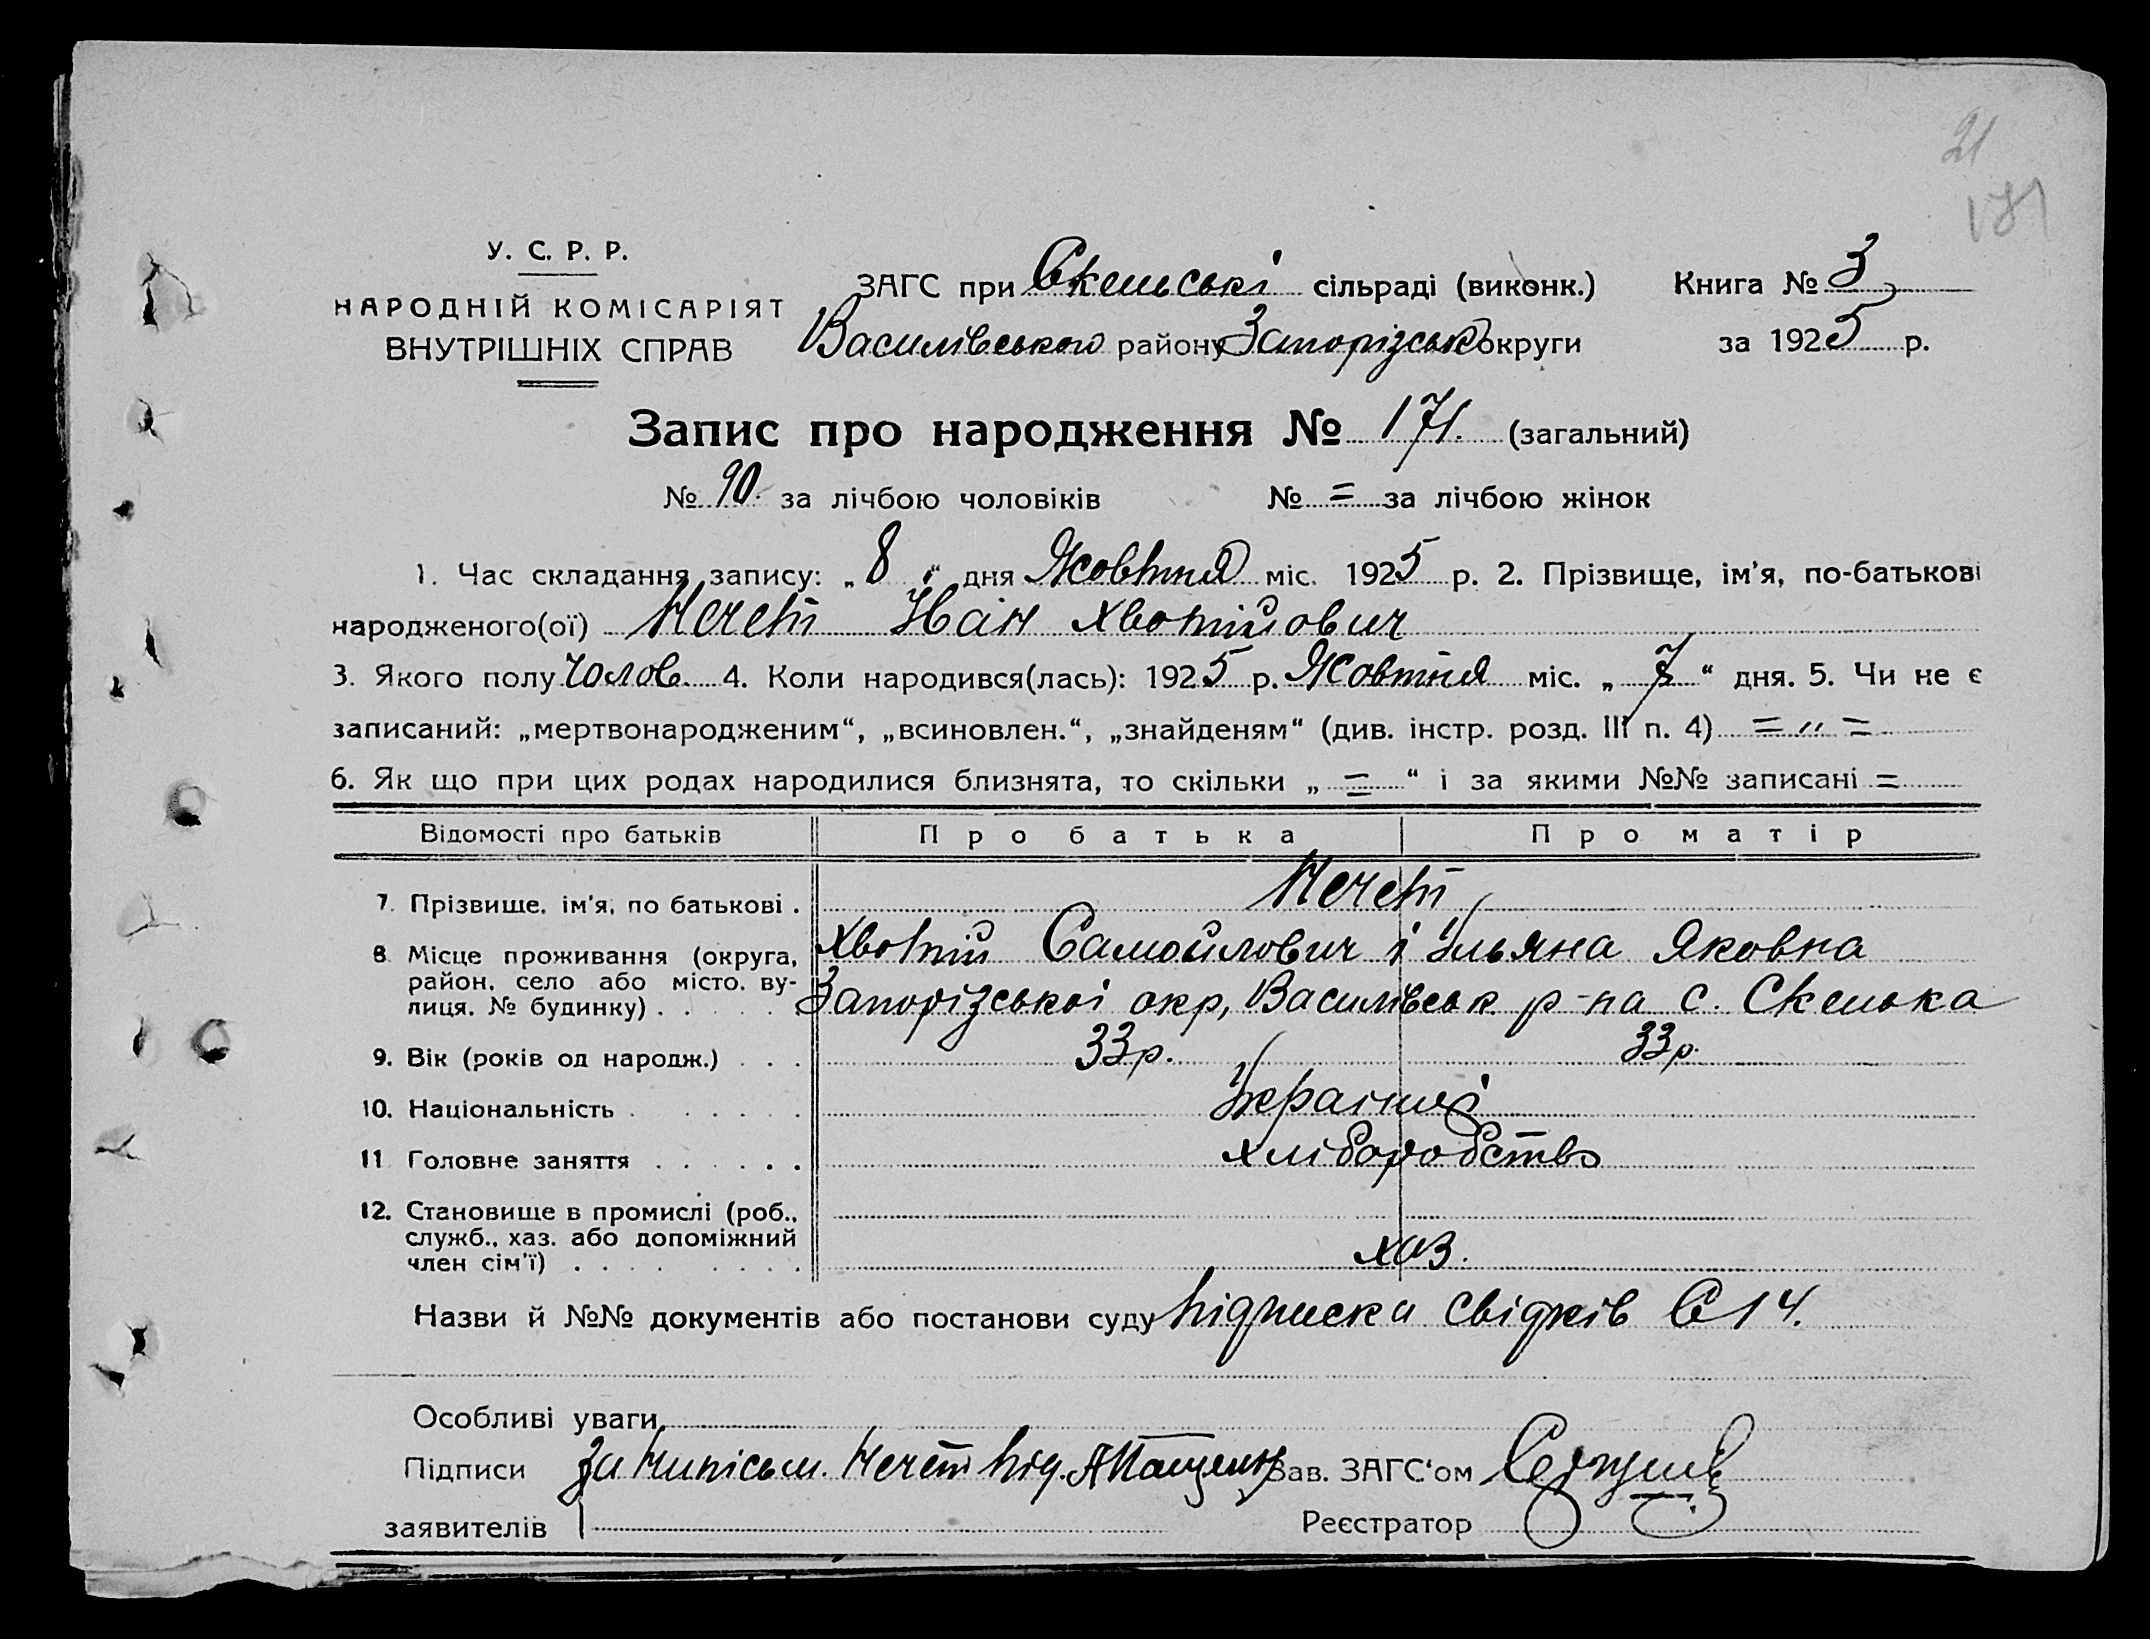 21
171
У. С. Р. Р.
НАРОДНІЙ КОМІСАРІЯТ
ВНУТРІШНІХ СПРАВ
ЗАГС при Скельські сільраді (виконк.) Книга № 3
Василівського району Запорізськ округи за 1925 р.
Запис про народження № 171. (загальний)
№ 90. за лічбою чоловіків № = за лічбою жінок
1. Час складання запису: „ 8 “ дня Жовтня міс. 1925 р. 2. Прізвище, ім'я, по-батькові
народженого(ої) Нечет Іван Хвотійович
3. Якого полу Чолов. 4. Коли народився(лась): 1925 р. Жовтня міс. „ 7 “ дня. 5. Чи не є
записаний: „мертвонародженим“, „всиновлен.“, „знайденям“ (див. інстр. розд. III п. 4) = „ =
6. Як що при цих родах народилися близнята, то скільки „ = “ і за якими №№ записані =
Відомості про батьків Про батька Про матір
7. Прізвище, ім'я, по батькові . Нечет
Хвотій Самойлович і Ульяна Яковна
8 Місце проживання (округа,
район, село або місто, ву-
лиця, № будинку) . . . . . Запорізської окр, Василівськ р-на с. Скелька
9. Вік (років од народж.) . . . 33р. 33р.
10. Національність . . . . . . Українці
11 Головне заняття . . . . . . хліборобство
12. Становище в промислі (роб.,
служб., хаз. або допоміжний
член сім'ї) . . . . . . . . хаз.
Назви й №№ документів або постанови суду підписка свідків С 14.
Особливі уваги
Підписи За Нипісьм. Нечет під. Зав. ЗАГС'ом
заявителів Реєстратор